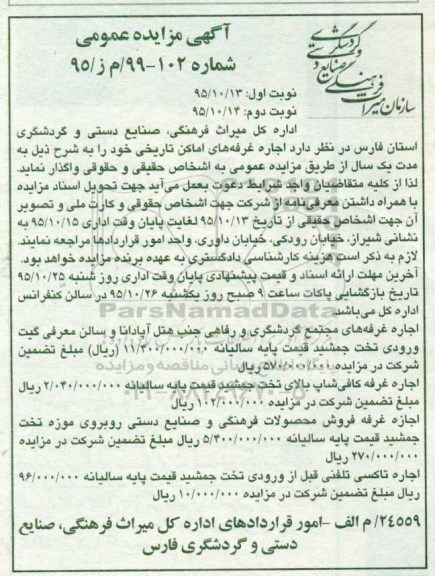 سازمان میراث فرهنگی
صنایع دستی
و گردشگری
آگهی مزایده عمومی
شماره ۱۰۲-۹۹/م ز/۹۵
نوبت اول: ۹۵/۱۰/۱۳
نوبت دوم: ۹۵/۱۰/۱۴
اداره کل میراث فرهنگی، صنایع دستی و گردشگری
استان فارس در نظر دارد اجاره غرفه‌های اماکن تاریخی خود را به شرح ذیل به
مدت یک سال از طریق مزایده عمومی به اشخاص حقیقی و حقوقی واگذار نماید.
لذا از کلیه متقاضیان واجد شرایط دعوت بعمل می‌آید جهت تحویل اسناد مزایده
با همراه داشتن معرفی‌نامه از شرکت جهت اشخاص حقوقی و کارت ملی و تصویر
آن جهت اشخاص حقیقی از تاریخ ۹۵/۱۰/۱۳ لغایت پایان وقت اداری ۹۵/۱۰/۱۵ به
نشانی شیراز، خیابان رودکی، خیابان داوری، واحد امور قراردادها مراجعه نمایند.
لازم به ذکر است هزینه کارشناسی دادگستری به عهده برنده مزایده خواهد بود.
آخرین مهلت ارائه اسناد و قیمت پیشنهادی پایان وقت اداری روز شنبه ۹۵/۱۰/۲۵
تاریخ بازگشایی پاکات ساعت ۹ صبح روز یکشنبه ۹۵/۱۰/۲۶ در سالن کنفرانس
اداره کل می‌باشد.
ParsNamadData
اجاره غرفه‌های مجتمع گردشگری و رفاهی جنب هتل آپادانا و سالن معرفی گیت
ورودی تخت جمشید قیمت پایه سالیانه ۱۱/۴۰۰/۰۰۰/۰۰۰ (ریال) مبلغ تضمین
شرکت در مزایده ۵۷۰/۰۰۰/۰۰۰ ریال
پایگاه اطلاع رسانی مناقصه و مزایده
اجاره غرفه کافی‌شاپ بالای تخت جمشید قیمت پایه سالیانه ۲/۰۴۰/۰۰۰/۰۰۰ ریال
مبلغ تضمین شرکت در مزایده ۱۰۲/۰۰۰/۰۰۰ ریال
اجاره غرفه فروش محصولات فرهنگی و صنایع دستی روبروی موزه تخت
جمشید قیمت پایه سالیانه ۵/۴۰۰/۰۰۰/۰۰۰ ریال مبلغ تضمین شرکت در مزایده
۲۷۰/۰۰۰/۰۰۰ ریال
اجاره تاکسی تلفنی قبل از ورودی تخت جمشید قیمت پایه سالیانه ۹۶/۰۰۰/۰۰۰
ریال مبلغ تضمین شرکت در مزایده ۱۰/۰۰۰/۰۰۰ ریال
۲۴۵۵۹/ م الف -امور قراردادهای اداره کل میراث فرهنگی، صنایع
دستی و گردشگری فارس